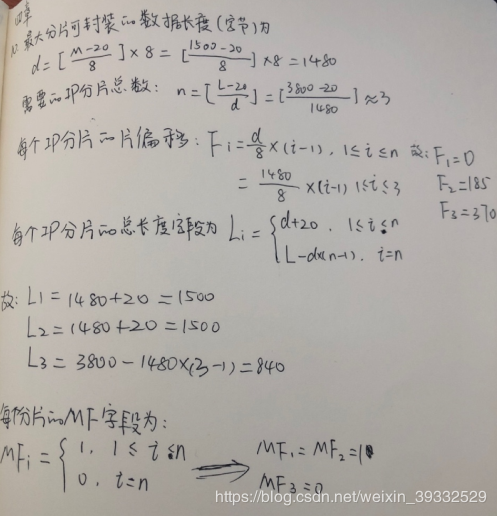 四章
10. 最大分片可封装的数据长度(字节)为
d = [M-20/8] × 8 = [1500-20/8] × 8 = 1480
需要的IP分片总数: n = [L-20/d] = [3800-20/1480] ≈ 3
每个IP分片的片偏移: Fi = d/8 × (i-1), 1 ≤ i ≤ n 故: F1 = 0
= 1480/8 × (i-1) 1 ≤ i ≤ 3 F2 = 185
F3 = 370
每个IP分片的总长度字段为 Li = { d+20, 1 ≤ i ≤ n
L-d×(n-1), i=n
故: L1 = 1480+20 = 1500
L2 = 1480+20 = 1500
L3 = 3800-1480×(3-1) = 840
每份分片的MF字段为:
MFi = { 1, 1 ≤ i ≤ n
0, i=n
⟹ MF1 = MF2 = 1
MF3 = 0
https://blog.csdn.net/weixin_39332529